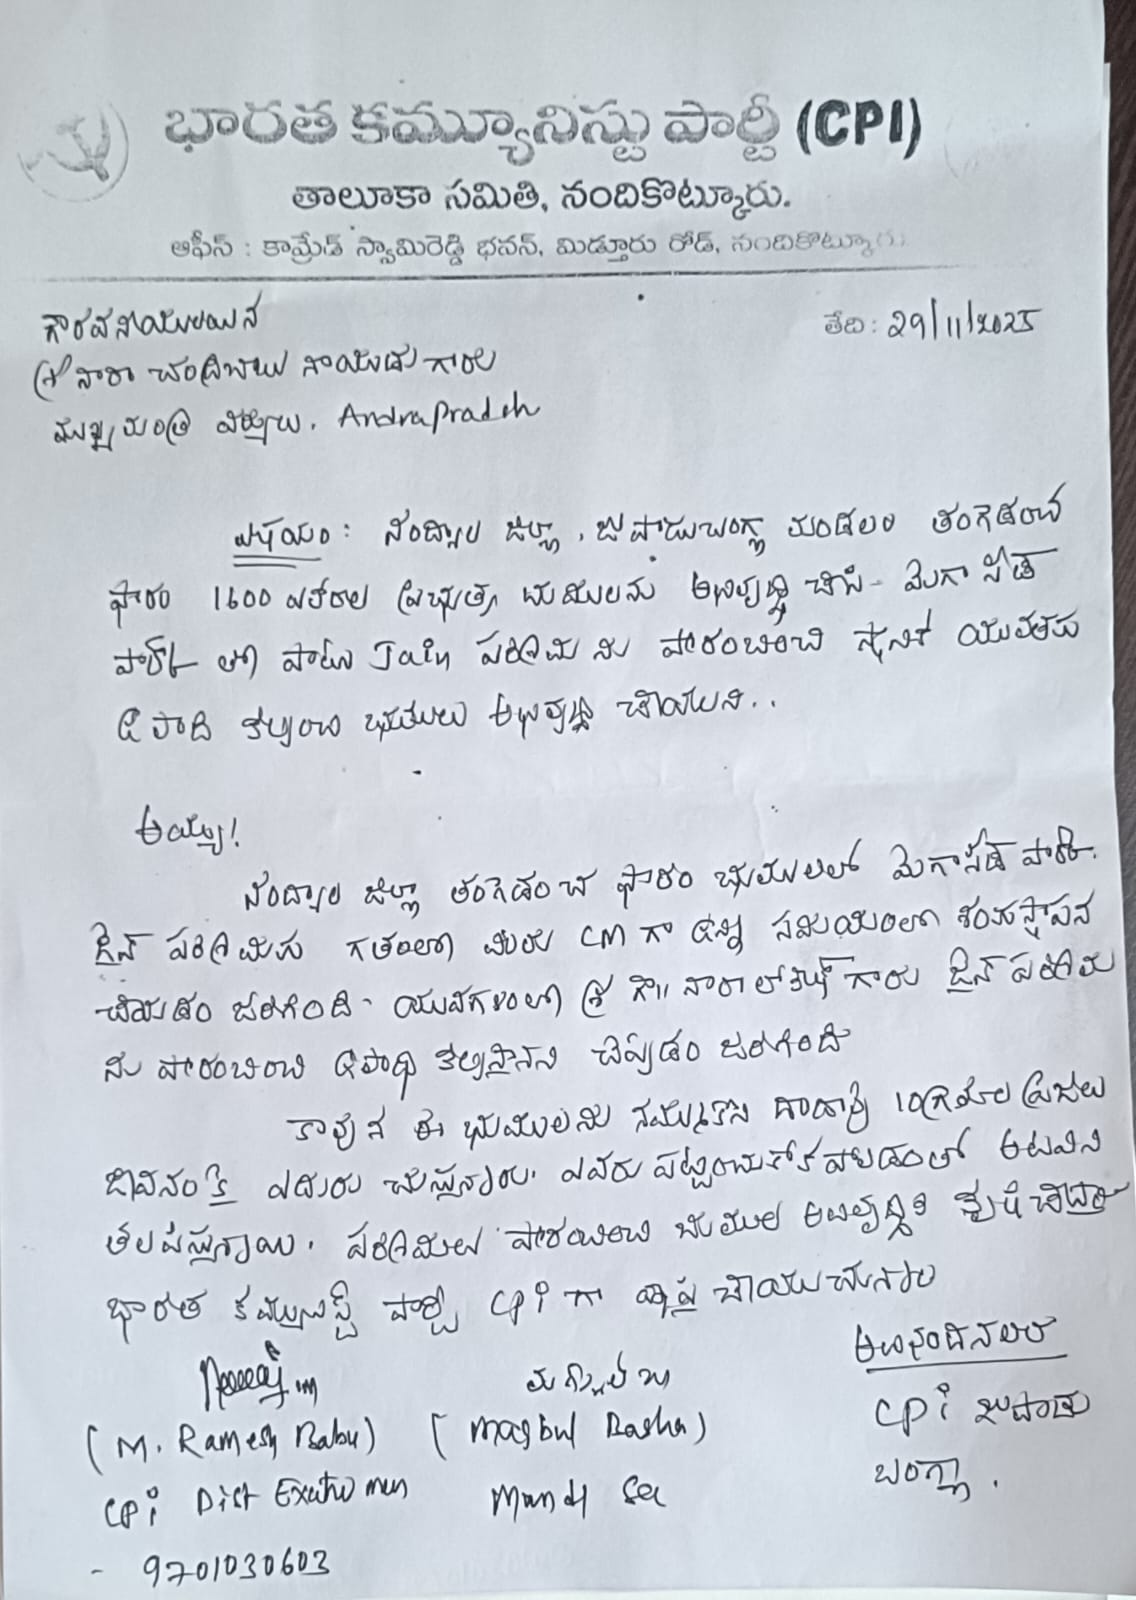 భారత కమ్యూనిస్టు పార్టీ (CPI)
తాలూకా సమితి, నందికొట్కూరు.
ఆఫీస్ : కామ్రేడ్ స్వామిరెడ్డి భవన్, మిడ్తూరు రోడ్, నందికొట్కూరు
తేది : 29/11/2025
గౌరవనీయులయిన
శ్రీ నారా చంద్రబాబు నాయుడు గారు
ముఖ్యమంత్రి వర్యులు. AndraPradesh
విషయం : నంద్యాల జిల్లా, జుపాడుబంగ్లా మండలం తంగెడంచ
ఫారం 1600 ఎకరాల ప్రభుత్వ భుములను అభివృద్ధి చేసి - మెగా సీడ్
పార్క్ తో పాటు Jain పరిశ్రమ ను ప్రారంబించి స్థానిక యువతకు
ఉపాది కల్పించి భుములు అభివృద్ధి చేయుటకు..
అయ్యా!
నంద్యాల జిల్లా తంగెడంచ ఫారం భుములలో మెగాసీడ్ పార్క్.
జైన్ పరిశ్రమకు గతంలో మీరు CM గా ఉన్న సమయంలో శంకుస్థాపన
చేయడం జరిగింది. యువగళంలో శ్రీ గౌ|| నారా లోకేష్ గారు జైన్ పరిశ్రమ
ను ప్రారంబించి ఉపాధి కల్పిస్తానని చెప్పడం జరిగింది
కావున ఈ భుములను నమ్ముకొని దాదాపు 10 గ్రామాల ప్రజలు
జీవనంకై ఎదురు చుస్తున్నారు. ఎవరు పట్టించుకోక పోవడంతో అటవిని
తలపిస్తున్నాయి. పరిశ్రమలు ప్రారంబించి భుముల అబివృద్ధికి కృషి చేయాలి
భారత కమ్యునిస్ట్ పార్టీ CPI గా విజ్ఞప్తి చేయుచున్నాం
అభినందనలతో
CPI జుపాడు
బంగ్లా.
మగ్బుల్ బాషా
(M. Ramesh Babu) (Magbul Basha)
CPI Dist Executive men Mandl Sec
- 9701030603